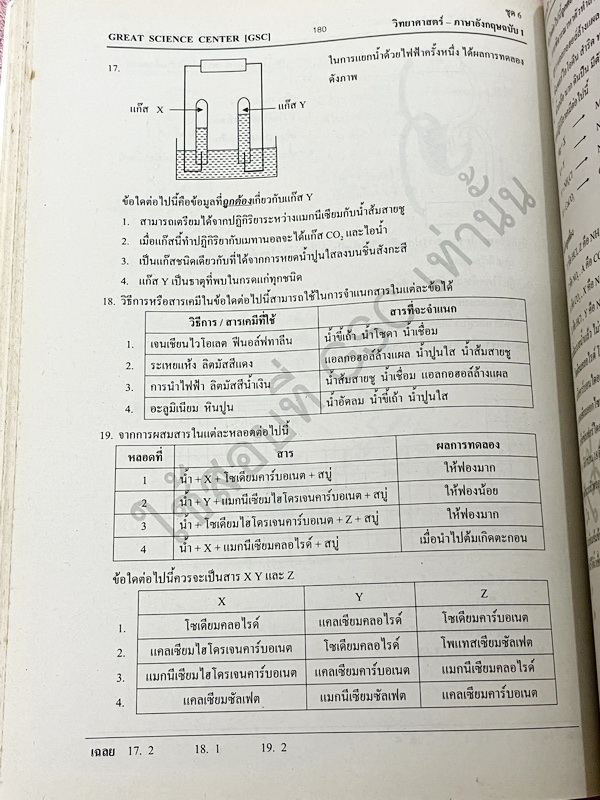 ชุด 6
GREAT SCIENCE CENTER [GSC] 180 วิทยาศาสตร์ – ภาษาอังกฤษฉบับ 1
17. ในการแยกน้ำด้วยไฟฟ้าครั้งหนึ่ง ได้ผลการทดลอง
ดังภาพ
แก๊ส X แก๊ส Y
ข้อใดต่อไปนี้คือข้อมูลที่ถูกต้องเกี่ยวกับแก๊ส Y
1. สามารถเตรียมได้จากปฏิกิริยาระหว่างแมกนีเซียมกับน้ำส้มสายชู
2. เมื่อแก๊สนี้ทำปฏิกิริยากับเมทานอลจะได้แก๊ส CO₂ และไอน้ำ
3. เป็นแก๊สชนิดเดียวกับที่ได้จากการหยดน้ำปูนใสลงบนชิ้นสังกะสี
4. แก๊ส Y เป็นธาตุที่พบในกรดแก่ทุกชนิด
18. วิธีการหรือสารเคมีในข้อใดต่อไปนี้สามารถใช้ในการจำแนกสารในแต่ละข้อได้
วิธีการ / สารเคมีที่ใช้ สารที่จะจำแนก
1. เจนเชียนไวโอเลต ฟีนอล์ฟทาลีน น้ำขี้เถ้า น้ำโซดา น้ำเชื่อม
2. ระเหยแห้ง ลิตมัสสีแดง แอลกอฮอล์ล้างแผล น้ำปูนใส น้ำส้มสายชู
3. การนำไฟฟ้า ลิตมัสสีน้ำเงิน น้ำส้มสายชู น้ำเชื่อม แอลกอฮอล์ล้างแผล
4. อะลูมิเนียม หินปูน น้ำอัดลม น้ำขี้เถ้า น้ำปูนใส
19. จากการผสมสารในแต่ละหลอดต่อไปนี้
หลอดที่ สาร ผลการทดลอง
1 น้ำ + X + โซเดียมคาร์บอเนต + สบู่ ให้ฟองมาก
2 น้ำ + Y + แมกนีเซียมไฮโดรเจนคาร์บอเนต + สบู่ ให้ฟองน้อย
3 น้ำ + โซเดียมไฮโดรเจนคาร์บอเนต + Z + สบู่ ให้ฟองมาก
4 น้ำ + X + แมกนีเซียมคลอไรด์ + สบู่ เมื่อนำไปต้มเกิดตะกอน
ข้อใดต่อไปนี้ควรจะเป็นสาร X Y และ Z
X Y Z
1. โซเดียมคลอไรด์ แคลเซียมคลอไรด์ โซเดียมคาร์บอเนต
2. แคลเซียมไฮโดรเจนคาร์บอเนต โซเดียมคลอไรด์ โพแทสเซียมซัลเฟต
3. แมกนีเซียมไฮโดรเจนคาร์บอเนต แคลเซียมคาร์บอเนต แมกนีเซียมคลอไรด์
4. แคลเซียมซัลเฟต แมกนีเซียมซัลเฟต แคลเซียมคาร์บอเนต
เฉลย 17. 2 18. 1 19. 2
ใช้สอบที่ GSC เท่านั้น